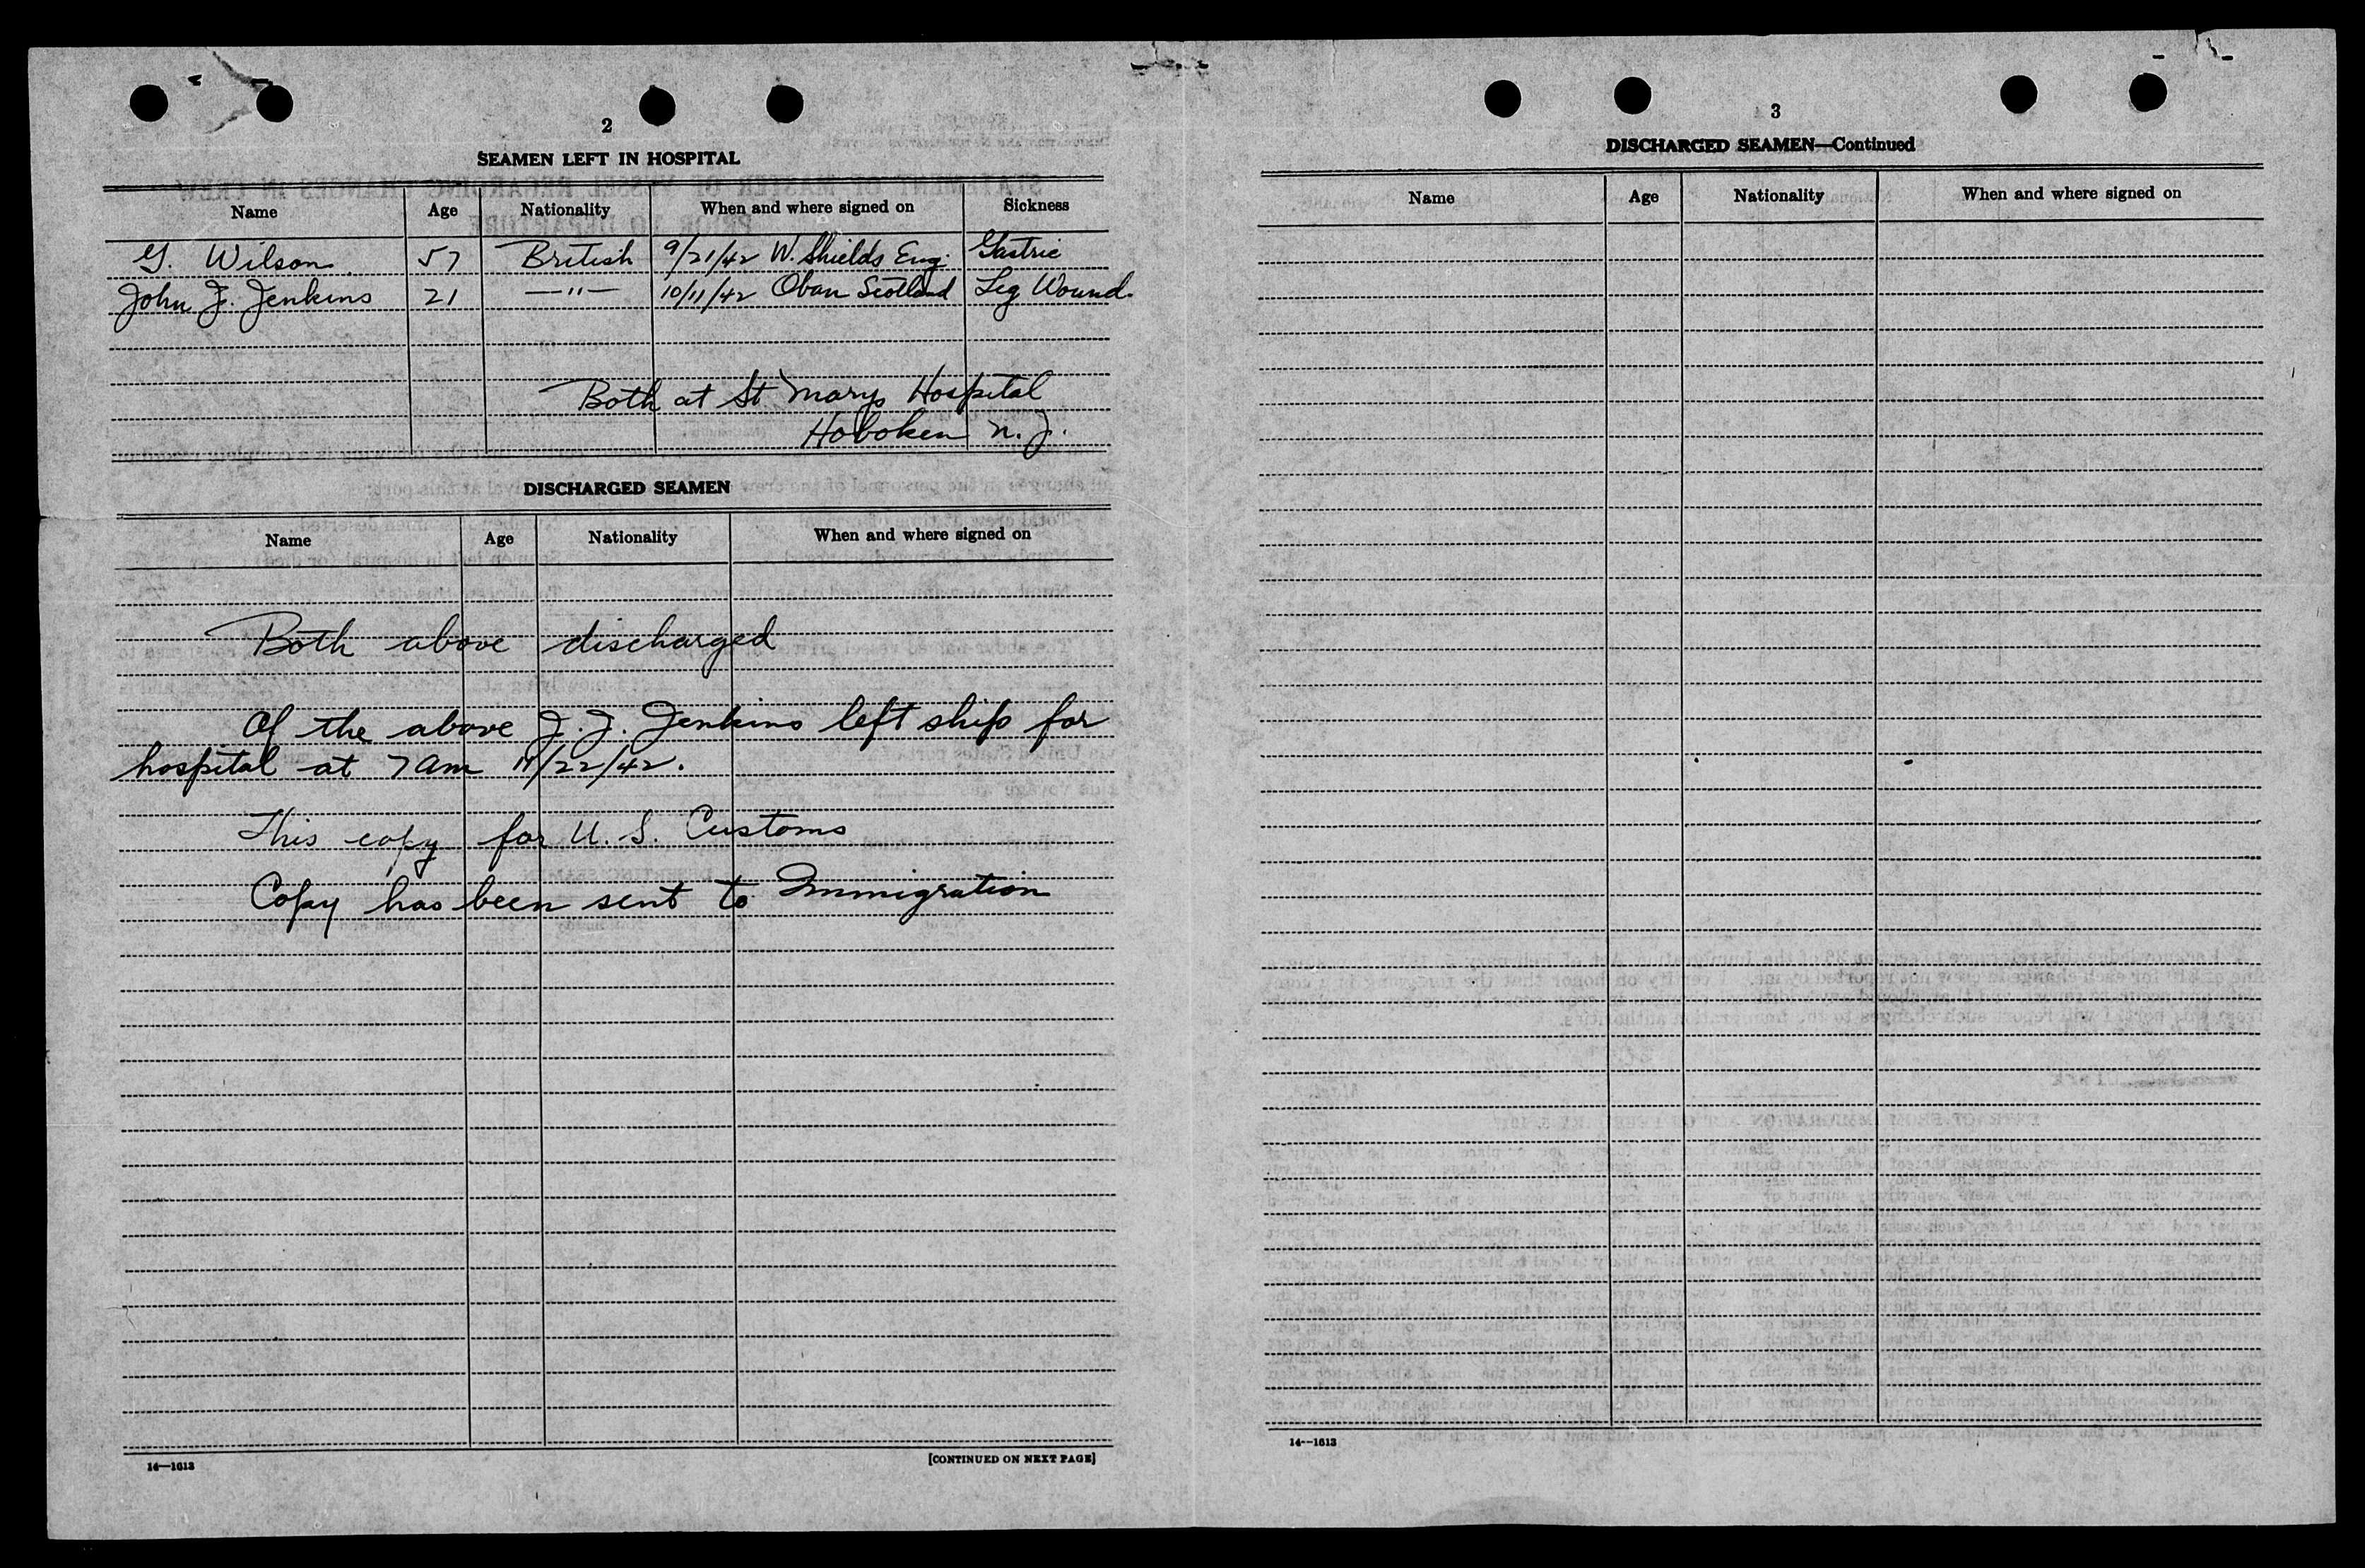 2
SEAMEN LEFT IN HOSPITAL
Name Age Nationality When and where signed on Sickness
G. Wilson 57 British 9/21/42 W. Shields Eng. Gastric
John J. Jenkins 21 —"— 10/11/42 Oban Scotland Leg Wound.
Both at St Marys Hospital
Hoboken N.J.
DISCHARGED SEAMEN
Name Age Nationality When and where signed on
Both above discharged
Of the above J. J. Jenkins left ship for
hospital at 7 am 11/22/42.
This copy for U. S. Customs
Copy has been sent to Immigration
14—1613
[CONTINUED ON NEXT PAGE]
3
DISCHARGED SEAMEN—Continued
Name Age Nationality When and where signed on
14—1613